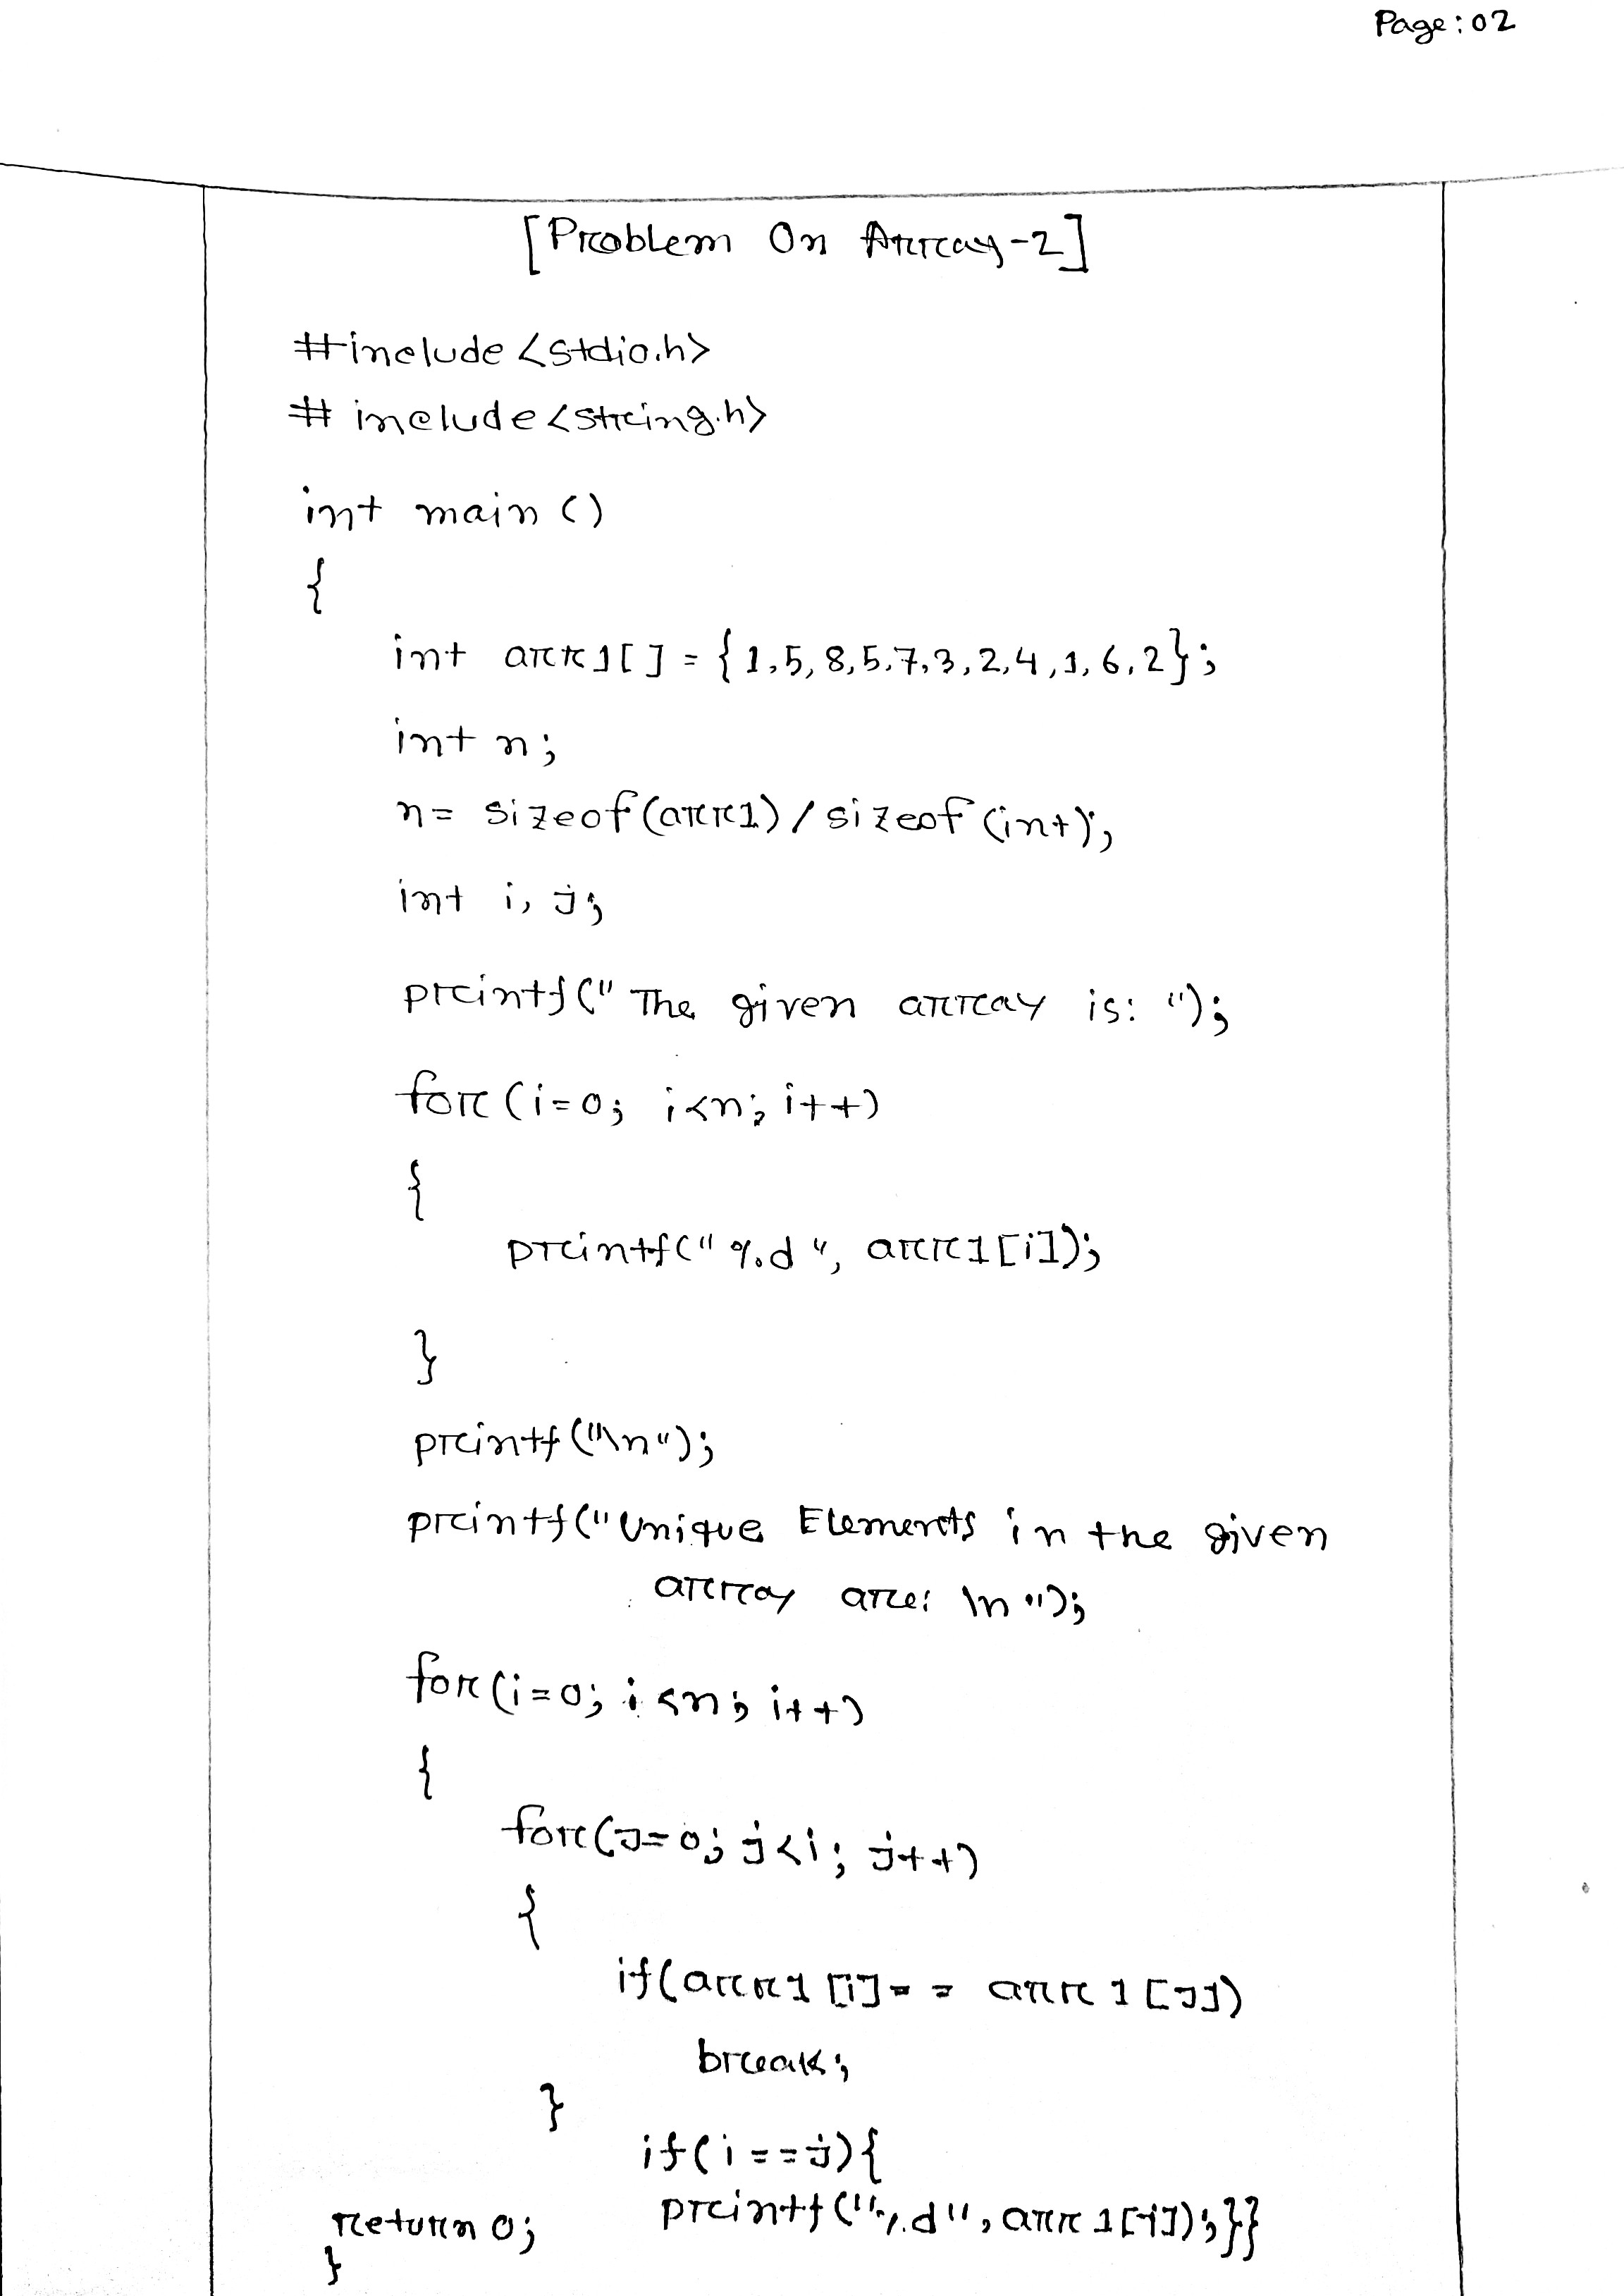 Page: 02
[Problem On Array-2]
#include <stdio.h>
# include <string.h>
int main ()
{
int arr1[] = {1,5,8,5,7,3,2,4,1,6,2};
int n;
n= sizeof(arr1)/sizeof(int);
int i, j;
printf(" The given array is: ");
for (i=0; i<n; i++)
{
printf(" %d ", arr1[i]);
}
printf("\n");
printf("Unique Elements in the given
array are: \n ");
for(i=0; i<n; i++)
{
for(j=0; j<i; j++)
{
if(arr1[i]== arr1[j])
break;
}
if(i==j){
printf("%d", arr1[i]);}}
return 0;
}